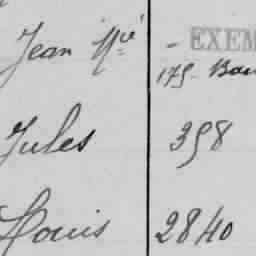 Jean Mie - EXEM
175 - Bau
Jules 398
Louis 2840